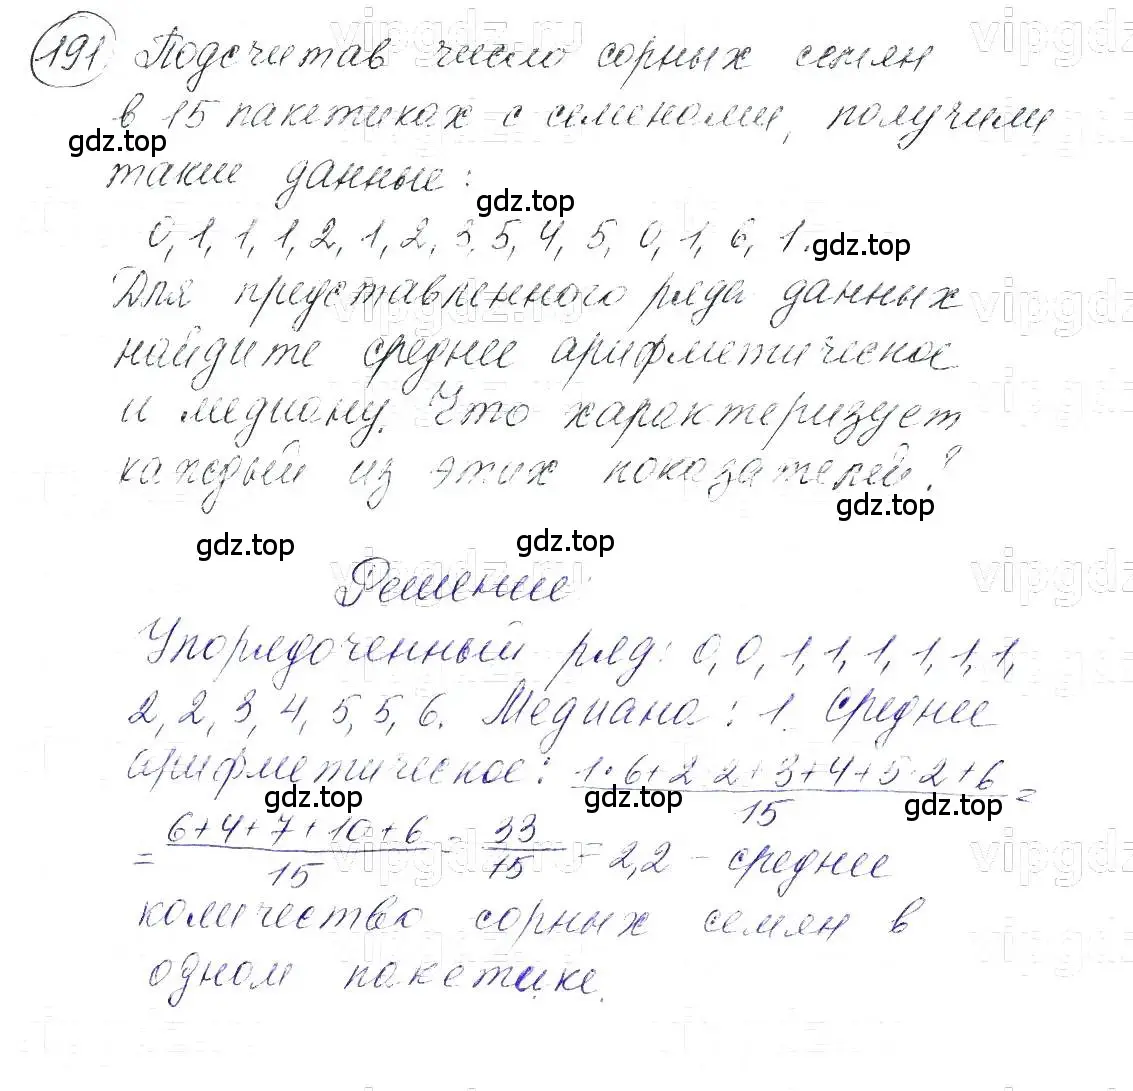 191 Подсчитав число сорных семян
в 15 пакетиках с семенами, получили
такие данные:
0, 1, 1, 1, 2, 1, 2, 3, 5, 4, 5, 0, 1, 6, 1.
Для представленного ряда данных
найдите среднее арифметическое
и медиану. Что характеризует
каждый из этих показателей?
Решение:
Упорядоченный ряд: 0, 0, 1, 1, 1, 1, 1, 1,
2, 2, 3, 4, 5, 5, 6. Медиана: 1. Среднее
арифметическое: (1·6+2·2+3+4+5·2+6)/15 =
= (6+4+7+10+6)/15 = 33/15 = 2,2 – среднее
количество сорных семян в
одном пакетике.
gdz.top
gdz.top
gdz.top
gdz.top
gdz.top
gdz.top
gdz.top
gdz.top
gdz.top
vipgdz.ru
vipgdz
vipgdz.ru
vipgdz
vipgdz.ru
vipgdz
vipgdz.ru
vipgdz
vipgdz.ru
vipgdz
vipgdz.ru
vipgdz
vipgdz.ru
vipgdz